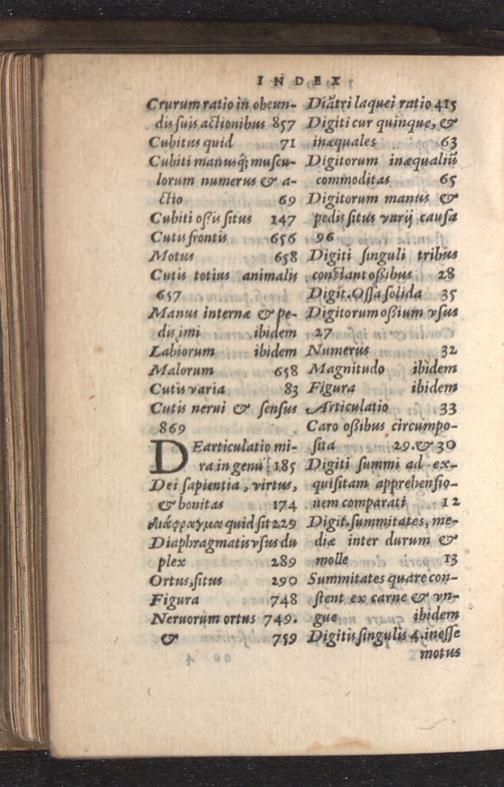 INDEX
Crurum ratio in obeun-
dis suis actionibus 857
Cubitus quid 71
Cubiti manusq́; muscu-
lorum numerus & a-
ctio 69
Cubiti oßis situs 147
Cutis frontis 656
Motus 658
Cutis totius animalis
657
Manus internæ & pe-
dis imi ibidem
Labiorum ibidem
Malorum 658
Cutis varia 83
Cutis nerui & sensus
869
DEarticulatio mi-
ra in genu 185
Dei sapientia, virtus,
& bonitas 174
διάφραγμα quid sit 229
Diaphragmatis vsus du
plex 289
Ortus, situs 290
Figura 748
Neruorum ortus 749.
& 759
Diãtri laquei ratio 415
Digiti cur quinque, &
inæquales 63
Digitorum inæqualiũ
commoditas 65
Digitorum manus &
pedis situs varij causa
96
Digiti singuli tribus
constant oßibus 28
Digit. Ossa solida 35
Digitorum oßium vsus
27
Numerus 32
Magnitudo ibidem
Figura ibidem
Articulatio 33
Caro oßibus circumpo-
sita 29. & 30
Digiti summi ad ex-
quisitam apprehensio-
nem comparati 12
Digit. summitates, me-
diæ inter durum &
molle 13
Summitates quare con-
stent ex carne & vn-
gue ibidem
Digitis singulis 4. inesse
motus